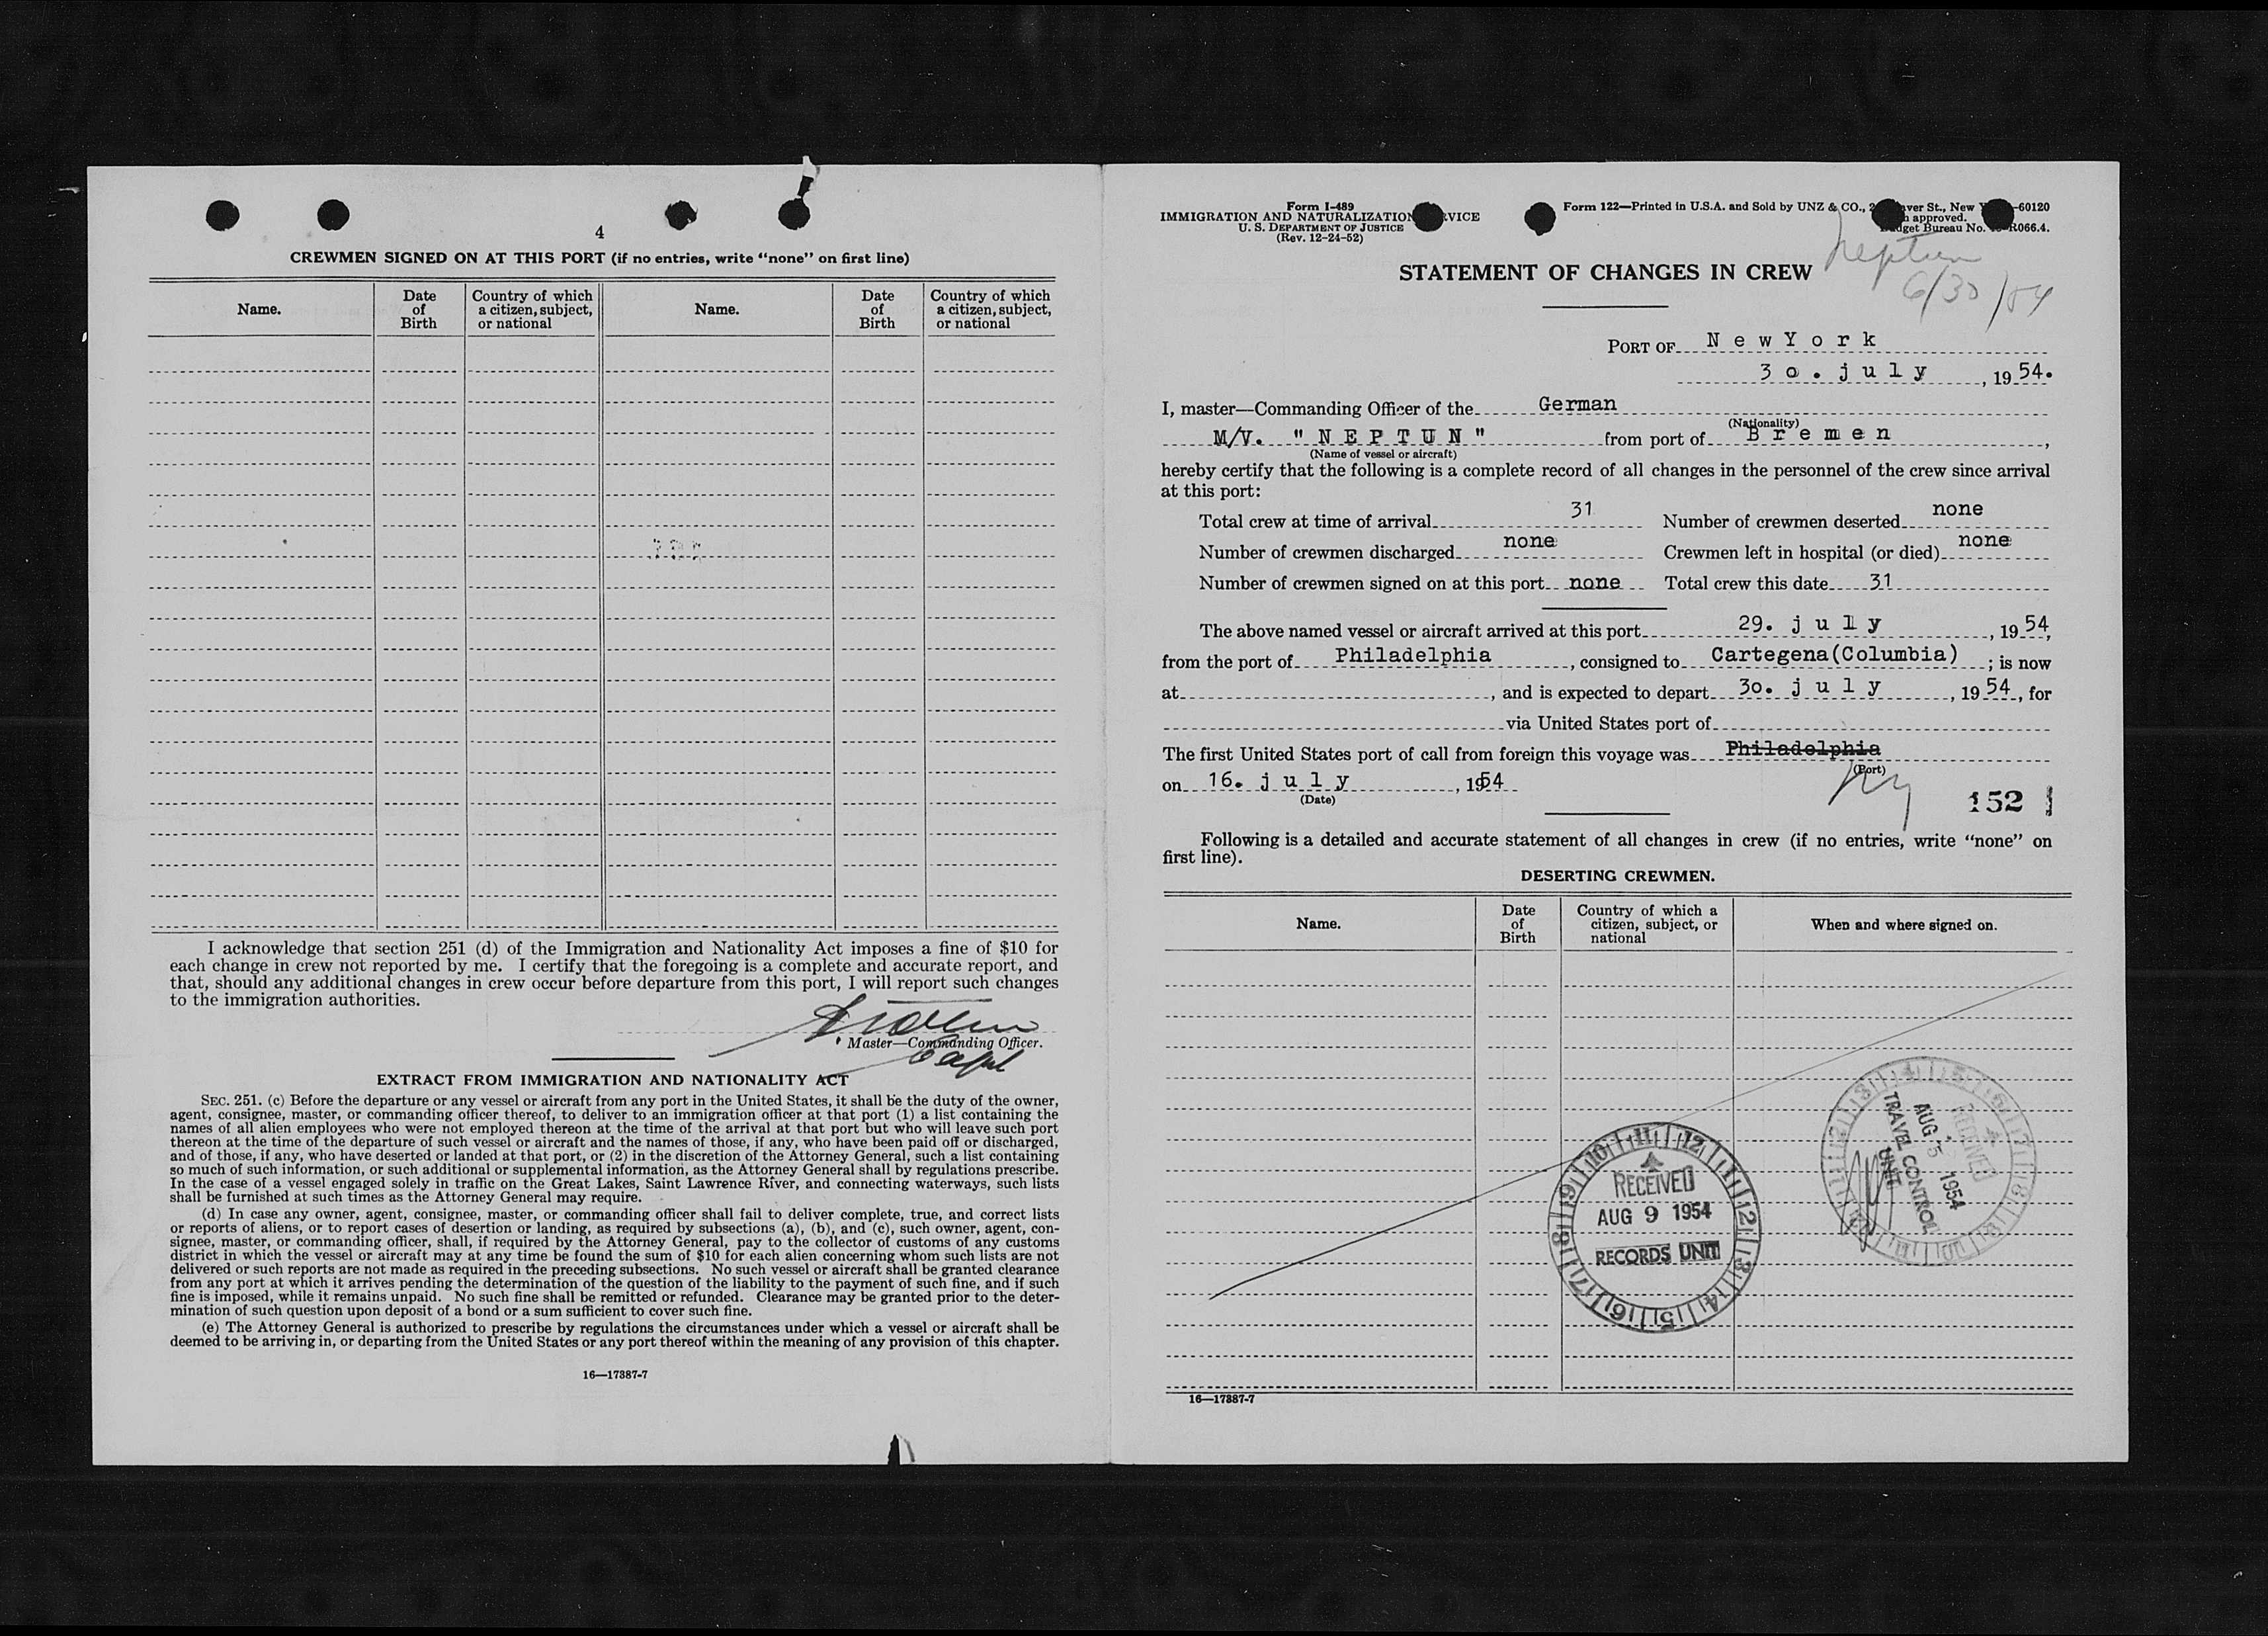 4
CREWMEN SIGNED ON AT THIS PORT (if no entries, write “none” on first line)
Name. Date of Birth Country of which a citizen, subject, or national Name. Date of Birth Country of which a citizen, subject, or national
I acknowledge that section 251 (d) of the Immigration and Nationality Act imposes a fine of $10 for
each change in crew not reported by me. I certify that the foregoing is a complete and accurate report, and
that, should any additional changes in crew occur before departure from this port, I will report such changes
to the immigration authorities.
Master—Commanding Officer.
Capt
EXTRACT FROM IMMIGRATION AND NATIONALITY ACT
SEC. 251. (c) Before the departure or any vessel or aircraft from any port in the United States, it shall be the duty of the owner,
agent, consignee, master, or commanding officer thereof, to deliver to an immigration officer at that port (1) a list containing the
names of all alien employees who were not employed thereon at the time of the arrival at that port but who will leave such port
thereon at the time of the departure of such vessel or aircraft and the names of those, if any, who have been paid off or discharged,
and of those, if any, who have deserted or landed at that port, or (2) in the discretion of the Attorney General, such a list containing
so much of such information, or such additional or supplemental information, as the Attorney General shall by regulations prescribe.
In the case of a vessel engaged solely in traffic on the Great Lakes, Saint Lawrence River, and connecting waterways, such lists
shall be furnished at such times as the Attorney General may require.
(d) In case any owner, agent, consignee, master, or commanding officer shall fail to deliver complete, true, and correct lists
or reports of aliens, or to report cases of desertion or landing, as required by subsections (a), (b), and (c), such owner, agent, con-
signee, master, or commanding officer, shall, if required by the Attorney General, pay to the collector of customs of any customs
district in which the vessel or aircraft may at any time be found the sum of $10 for each alien concerning whom such lists are not
delivered or such reports are not made as required in the preceding subsections. No such vessel or aircraft shall be granted clearance
from any port at which it arrives pending the determination of the question of the liability to the payment of such fine, and if such
fine is imposed, while it remains unpaid. No such fine shall be remitted or refunded. Clearance may be granted prior to the deter-
mination of such question upon deposit of a bond or a sum sufficient to cover such fine.
(e) The Attorney General is authorized to prescribe by regulations the circumstances under which a vessel or aircraft shall be
deemed to be arriving in, or departing from the United States or any port thereof within the meaning of any provision of this chapter.
16—17387-7
Form I-489
IMMIGRATION AND NATURALIZATION VICE
U. S. DEPARTMENT OF JUSTICE
(Rev. 12-24-52)
Form 122—Printed in U.S.A. and Sold by UNZ & CO., 2 ver St., New -60120
approved.
Budget Bureau No. R066.4.
Neptun
6/30/54
STATEMENT OF CHANGES IN CREW
PORT OF New York
3o. july, 19 54.
I, master—Commanding Officer of the German
(Nationality)
M/V. "NEPTUN" from port of Bremen,
(Name of vessel or aircraft)
hereby certify that the following is a complete record of all changes in the personnel of the crew since arrival
at this port:
Total crew at time of arrival 31 Number of crewmen deserted none
Number of crewmen discharged none Crewmen left in hospital (or died) none
Number of crewmen signed on at this port none Total crew this date 31
The above named vessel or aircraft arrived at this port 29. july, 19 54,
from the port of Philadelphia, consigned to Cartegena(Columbia); is now
at , and is expected to depart 3o. july, 19 54, for
via United States port of
The first United States port of call from foreign this voyage was Philadelphia
(Port)
NY
on 16. july, 1954
(Date)
152
Following is a detailed and accurate statement of all changes in crew (if no entries, write “none” on
first line).
DESERTING CREWMEN.
Name. Date of Birth Country of which a citizen, subject, or national When and where signed on.
RECEIVED
AUG 5 1954
TRAVEL CONTROL
UNIT
RECEIVED
AUG 9 1954
RECORDS UNIT
16—17387-7